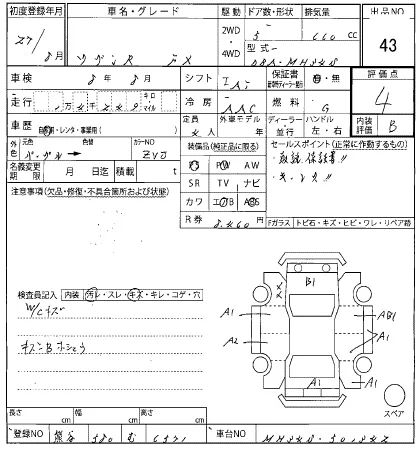 初度登録年月 車名・グレード 駆動 ドア数・形状 排気量 出品NO
27/8月 ワゴンR FX 2WD・4WD 5 660 cc 43
型式
DBA-MH34S
車検 8年 8月 シフト IAT 保証書 有・無 評価点
走行 万 千 キロ マイル 冷房 AAC 燃料 G 4
車歴 自家用・レンタ・事業用( ) 定員 4人 外車モデル 年 ディーラー 並行 ハンドル 左・右 内装評価 B
外色 元色 パープル 色替 カラーNO ZVJ
装備品(純正品に限る) セールスポイント(正常に作動するもの)
名義変更期限 月 日迄 積載量 t
PS PW AW
取説 保証書〃
SR TV ナビ
キーレス〃
注意事項(欠品・修復・不具合箇所および状態)
カワ エアB ABS
R券 Fガラス トビ石・キズ・ヒビ・ワレ・リペア跡
検査員記入 内装 汚レ・スレ・キズ・キレ・コゲ・穴
W/Cキズ
B1
A1 AB1
A2 A1
A1
スペア
長さ cm 幅 cm 高さ cm
登録NO 熊谷 580 む 6571 車台NO